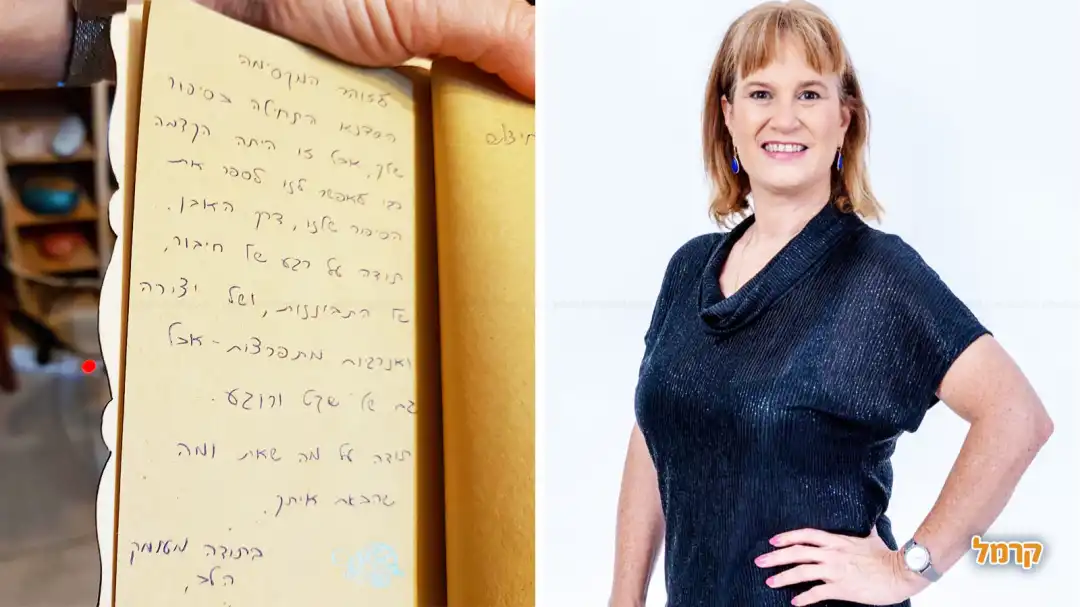 לזוהר המקסימה
הסדנא התחילה בסיפור
שלך, אבל זו היתה הקדמה
כדי לאפשר לנו לספר את
הסיפור שלנו, דרך האבן.
תודה על רגע של חיבור,
של התבוננות, ושל יצירה
ואנרגיות מתפרצות - אבל
גם של שקט ורוגע.
תודה על מה שאת ומה
שהבאת איתך.
בתודה מעומק
הלב,
קרמל